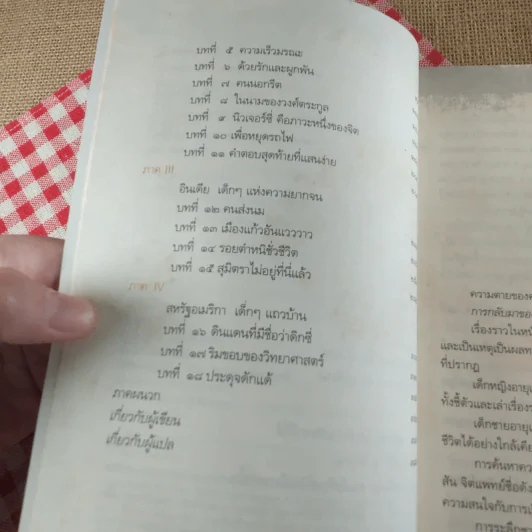 บทที่ ๕ ความเร็วมรณะ
บทที่ ๖ ด้วยรักและผูกพัน
บทที่ ๗ คนนอกรีต
บทที่ ๘ ในนามของวงศ์ตระกูล
บทที่ ๙ นิวเจอร์ซี่ คือภาวะหนึ่งของจิต
บทที่ ๑๐ เพื่อหยุดรถไฟ
บทที่ ๑๑ คำตอบสุดท้ายที่แสนง่าย
ภาค III
อินเดีย เด็กๆ แห่งความยากจน
บทที่ ๑๒ คนส่งนม
บทที่ ๑๓ เมืองแก้วอันแวววาว
บทที่ ๑๔ รอยตำหนิชั่วชีวิต
บทที่ ๑๕ สุมิตราไม่อยู่ที่นี่แล้ว
ภาค IV
สหรัฐอเมริกา เด็กๆ แถวบ้าน
บทที่ ๑๖ ดินแดนที่มีชื่อว่าดิกซี่
บทที่ ๑๗ ริมขอบของวิทยาศาสตร์
บทที่ ๑๘ ประตุจดักแด้
ภาคผนวก
เกี่ยวกับผู้เขียน
เกี่ยวกับผู้แปล
ความตายของ
การกลับมาของ
เรื่องราวในหนั
และเป็นเหตุเป็นผลท
ที่ปรากฏ
เด็กหญิงอายุ
ทั้งชี้ตัวและเล่าเรื่อง
เด็กชายอายุ
ชีวิตได้อย่างใกล้เคีย
การค้นหาคว
สัน จิตแพทย์ชื่อดัง
ความสนใจกับการ
การระลึกชา